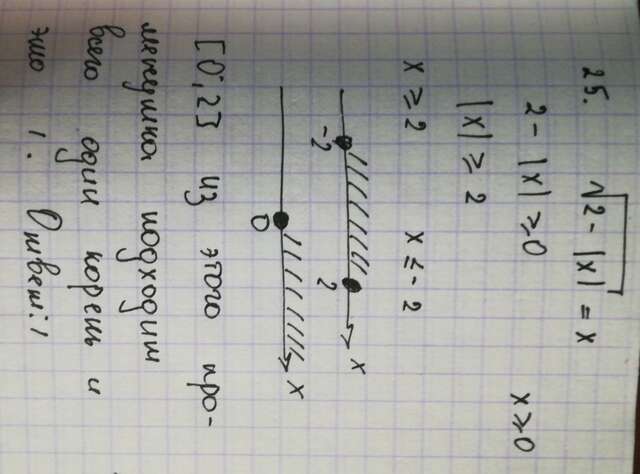 25. √2 - |x| = x
2 - |x| ≥ 0 x ≥ 0
|x| ≥ 2
x ≥ 2 x ≤ -2
-2 2 x
0 x
[0; 2] из этого про-
межутка подходит
всего один корень и
это 1. Ответ: 1